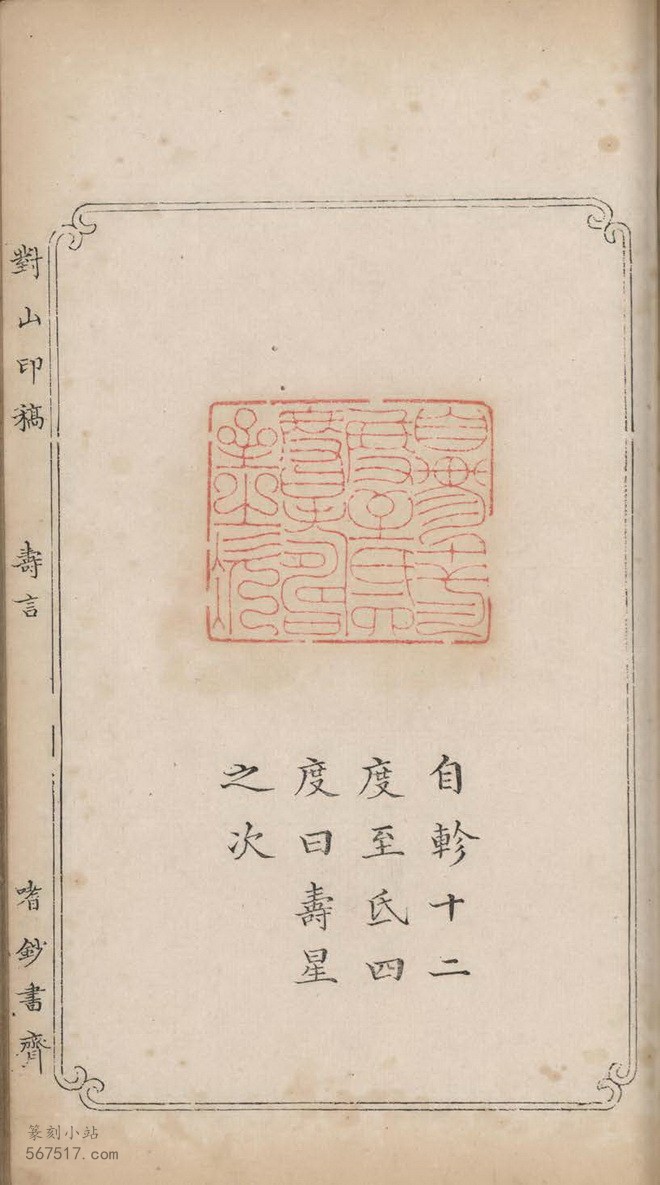 自軫十二
度至氐四
度曰壽星
之次
對山印稿 壽言 嗜鈔書齋
篆刻小站
567517.com